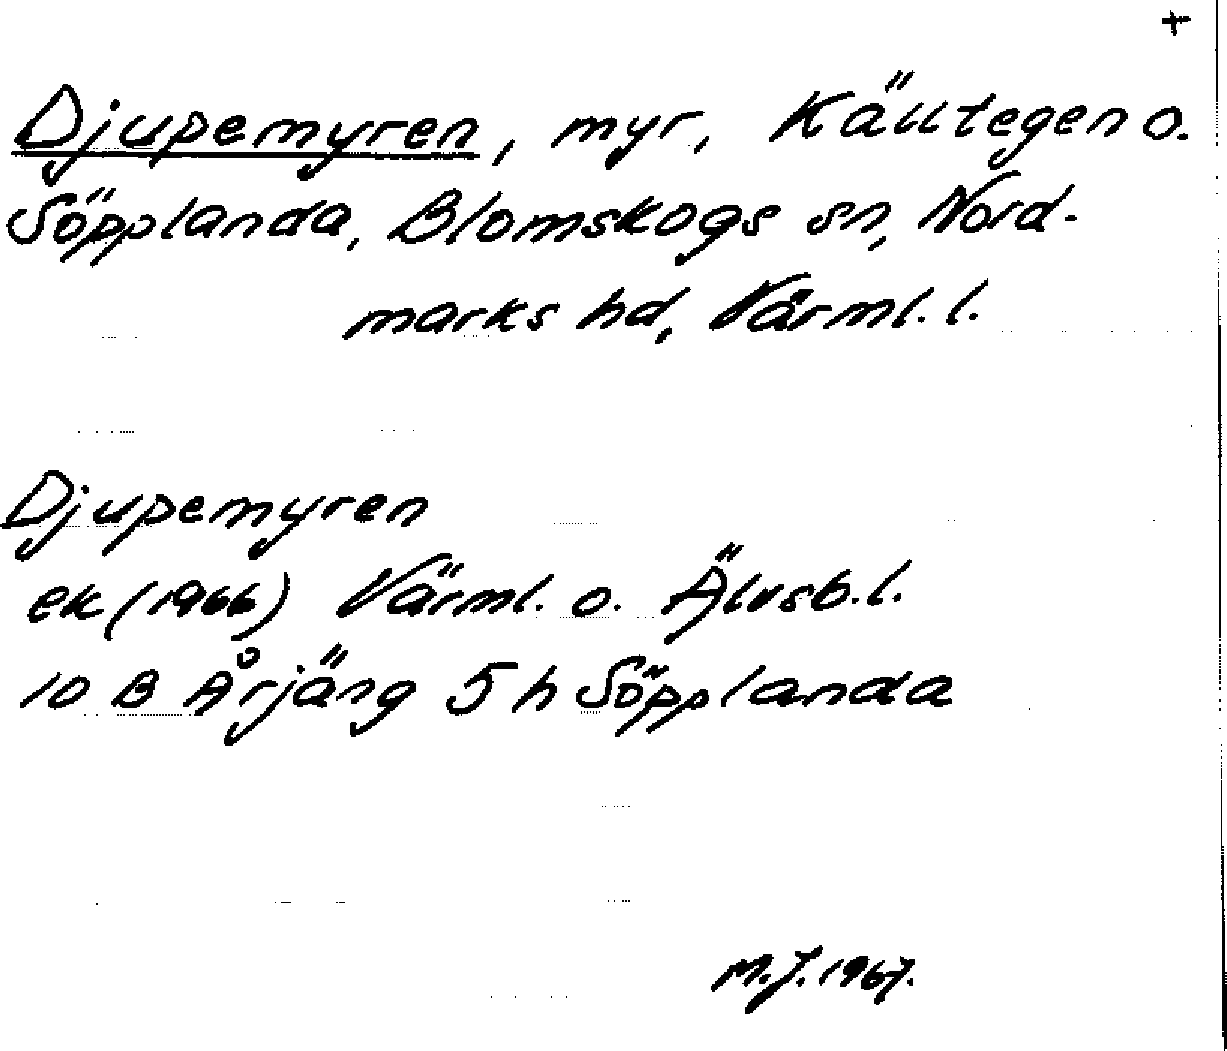 +
Djupemyren, myr, Källtegen o.
Söpplanda, Blomskogs sn, Nord-
marks hd, Värml. l.
Djupemyren
ek (1966) Värml. o. Älvsb. l.
10 B Årjäng 5 h Söpplanda
M.J. 1967.